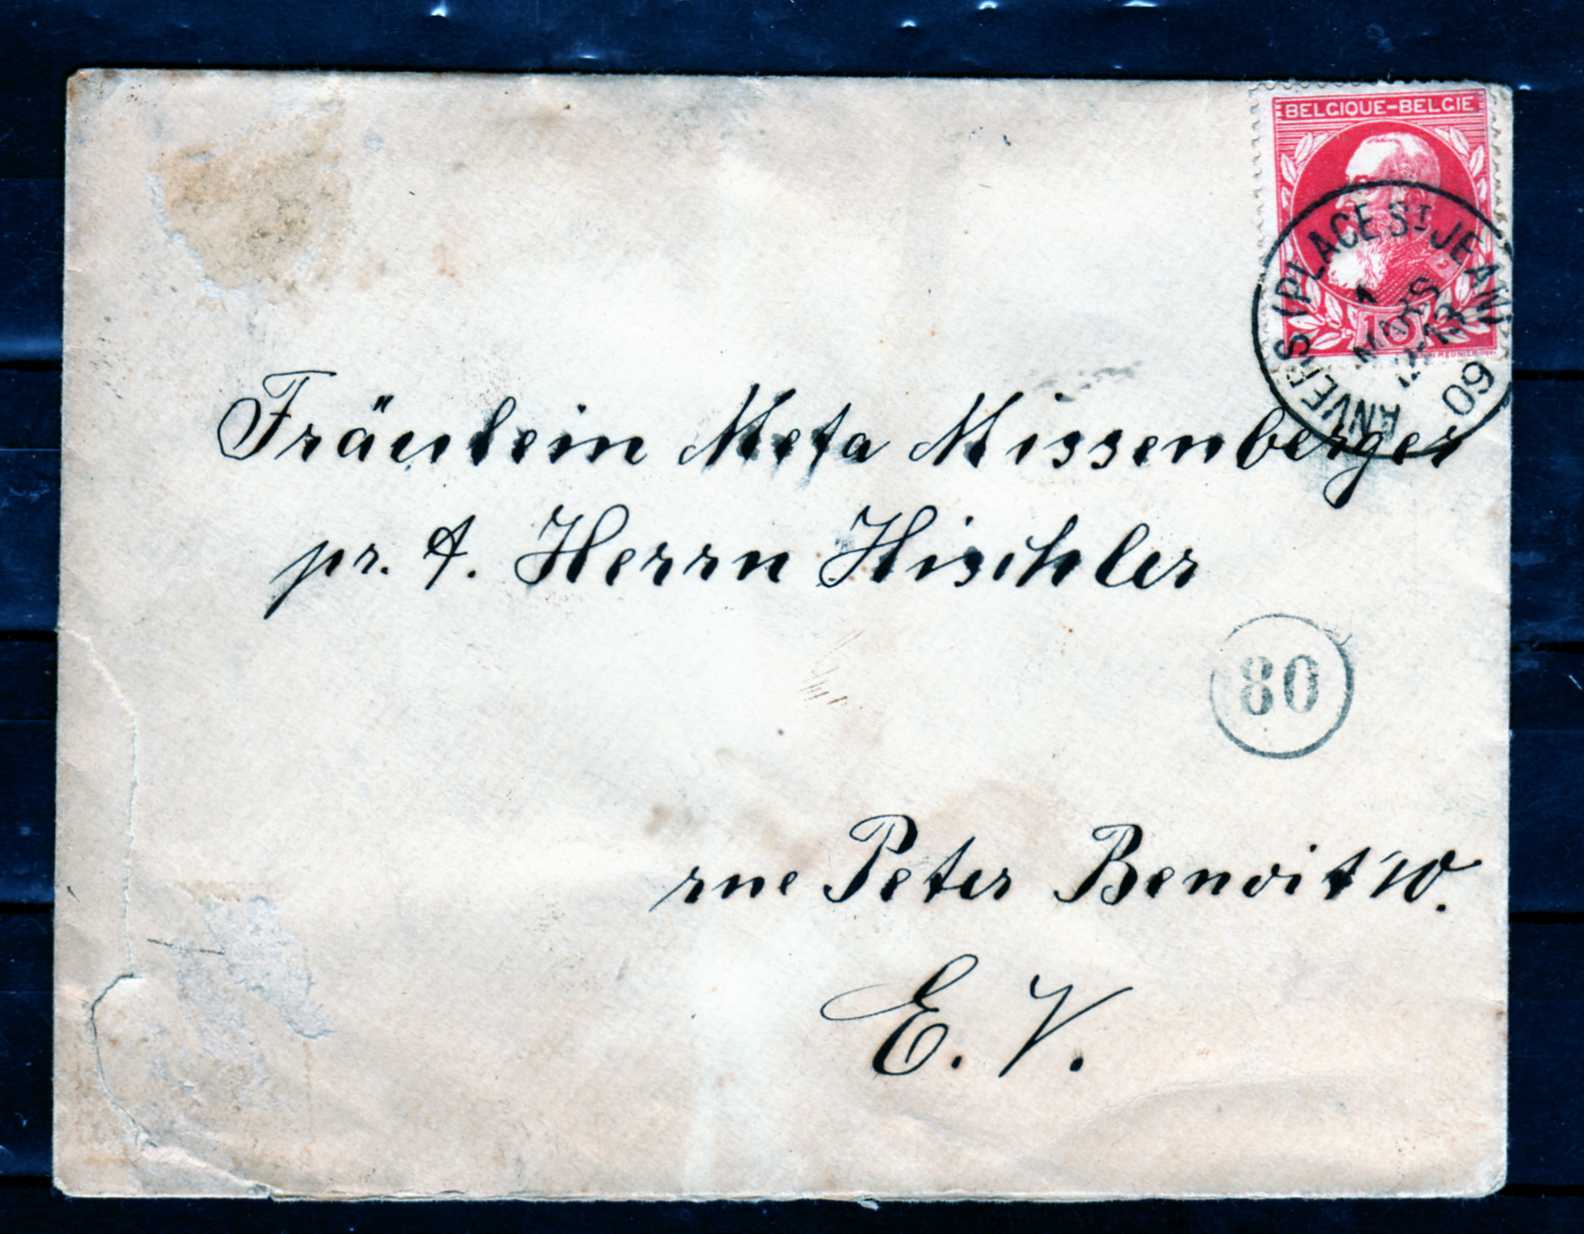 BELGIQUE-BELGIE
10
ANVERS (PLACE ST JEAN)
1
MARS
09
Fräulein Meta Missenberger
pr. A. Herrn Hischler
80
rue Peter Benoit 10.
E. V.